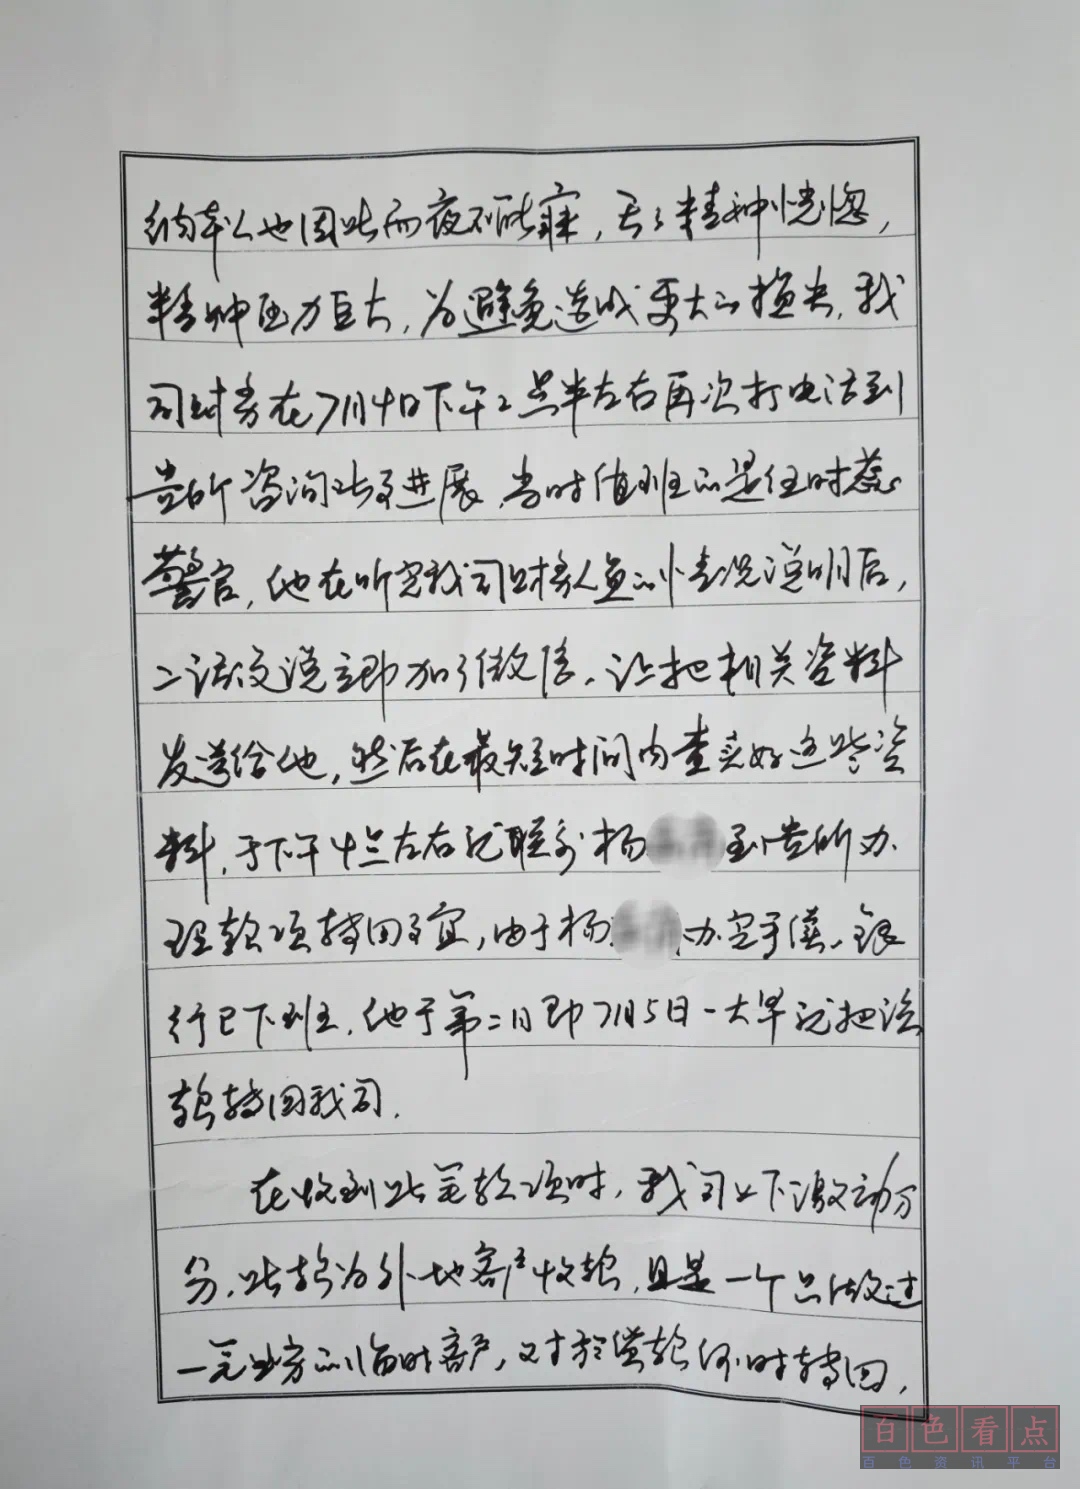 纳本人也因此而夜不能寐，天天精神恍惚，
精神压力巨大，为避免造成更大的损失，我
司财务在7月4日下午2点半左右再次打电话到
贵所咨询此事进展，当时值班的是任时蕊
警官，他在听完我司财务人员的情况说明后，
二话没说立即加了微信，让把相关资料
发送给他，然后在最短时间内查实好这些资
料，于下午4点左右就联系杨 到贵所办
理款项转回事宜，由于杨 办完手续，银
行已下班，他于第二日即7月5日一大早就把该
款转回我司．
在收到此笔款项时，我司上下激动万
分，此款为外地客户收款，且是一个只做过
一笔业务的临时客户，对于该款何时转回，
百色看点
百色资讯平台